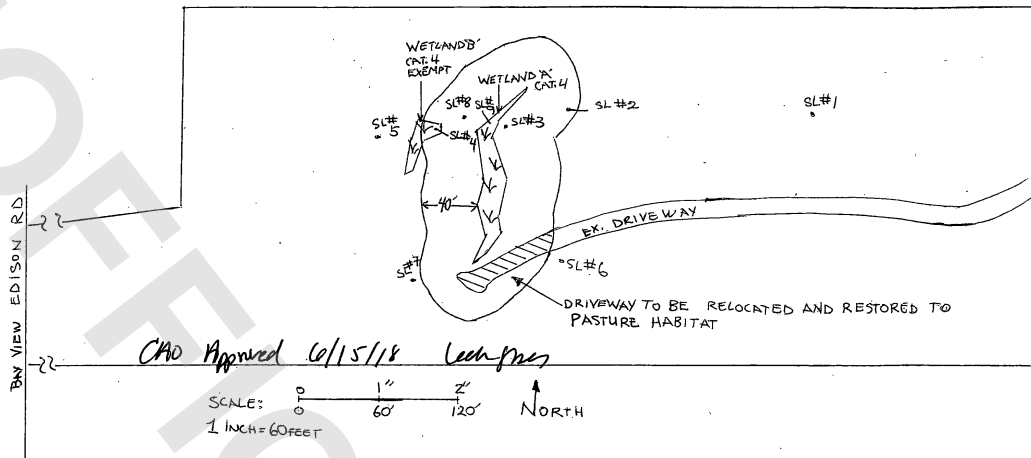 WETLAND 'B'
CAT. 4
EXEMPT
WETLAND 'A'
CAT. 4
SL#8
SL#9
SL#2
SL#1
SL#
5
SL#4
SL#3
40'
EX. DRIVEWAY
SL#7
SL#6
DRIVEWAY TO BE RELOCATED AND RESTORED TO
PASTURE HABITAT
BAY VIEW EDISON RD
CAO Approved 6/15/18
SCALE:
0 1" 2"
0 60' 120'
1 INCH = 60 FEET
NORTH
OFFIC